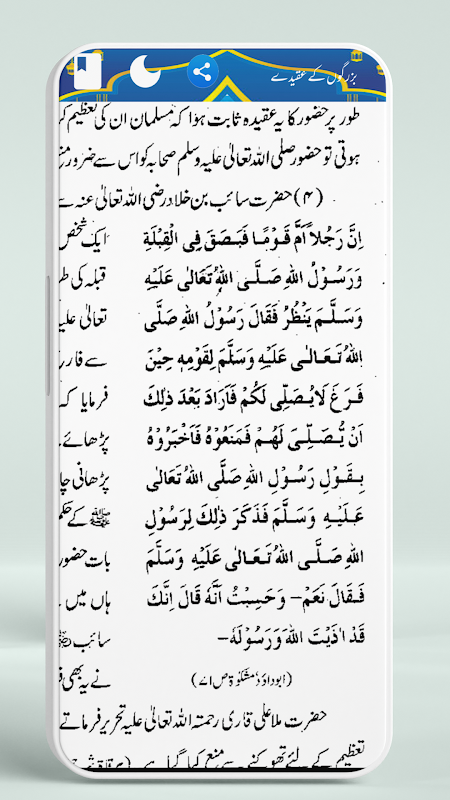 بزرگوں کے عقیدے
طور پر حضور کا یہ عقیدہ ثابت ہوا کہ مسلمان ان کی تعظیم کر
ہوتی تو حضور صلی اللہ تعالیٰ علیہ وسلم صحابہ کو اس سے ضرور منع
(۴) حضرت سائب بن خلاد رضی اللہ تعالیٰ عنہ سے
اِنَّ رَجُلاً اَمَّ قَوْمًا فَبَصَقَ فِی الْقِبْلَةِ
وَرَسُوْلُ اللهِ صَلَّی اللهُ تَعَالٰی عَلَیْهِ
وَسَلَّمَ یَنْظُرُ فَقَالَ رَسُوْلُ اللهِ صَلَّی
اللهُ تَعَالٰی عَلَیْهِ وَسَلَّمَ لِقَوْمِهٖ حِیْنَ
فَرَغَ لَایُصَلِّی لَکُمْ فَاَرَادَ بَعْدَ ذٰلِكَ
اَنْ یُّصَلِّیَ لَهُمْ فَمَنَعُوْهُ فَاَخْبَرُوْهُ
بِقَوْلِ رَسُوْلِ اللهِ صَلَّی اللهُ تَعَالٰی
عَلَیْهِ وَسَلَّمَ فَذَکَرَ ذٰلِكَ لِرَسُوْلِ
اللهِ صَلَّی اللهُ تَعَالٰی عَلَیْهِ وَسَلَّمَ
فَقَالَ نَعَمْ- وَحَسِبْتُ اَنَّهٗ قَالَ اِنَّكَ
قَدْ اٰذَیْتَ اللهَ وَرَسُوْلَهٗ-
(ابوداؤد مشکوٰۃ ص ۷۱)
ایک شخص
قبلہ کی طر
تعالیٰ علیہ
سے فار
فرمایا کہ
پڑھائے۔
پڑھانی چا
ﷺ کے حکم
بات حضور
ہاں میں
سائب
نے یہ بھی ف
حضرت ملا علی قاری رحمتہ اللہ تعالیٰ علیہ تحریر فرماتے
تعظیم کے لئے تھوکنے سے منع کیا گیا ہے